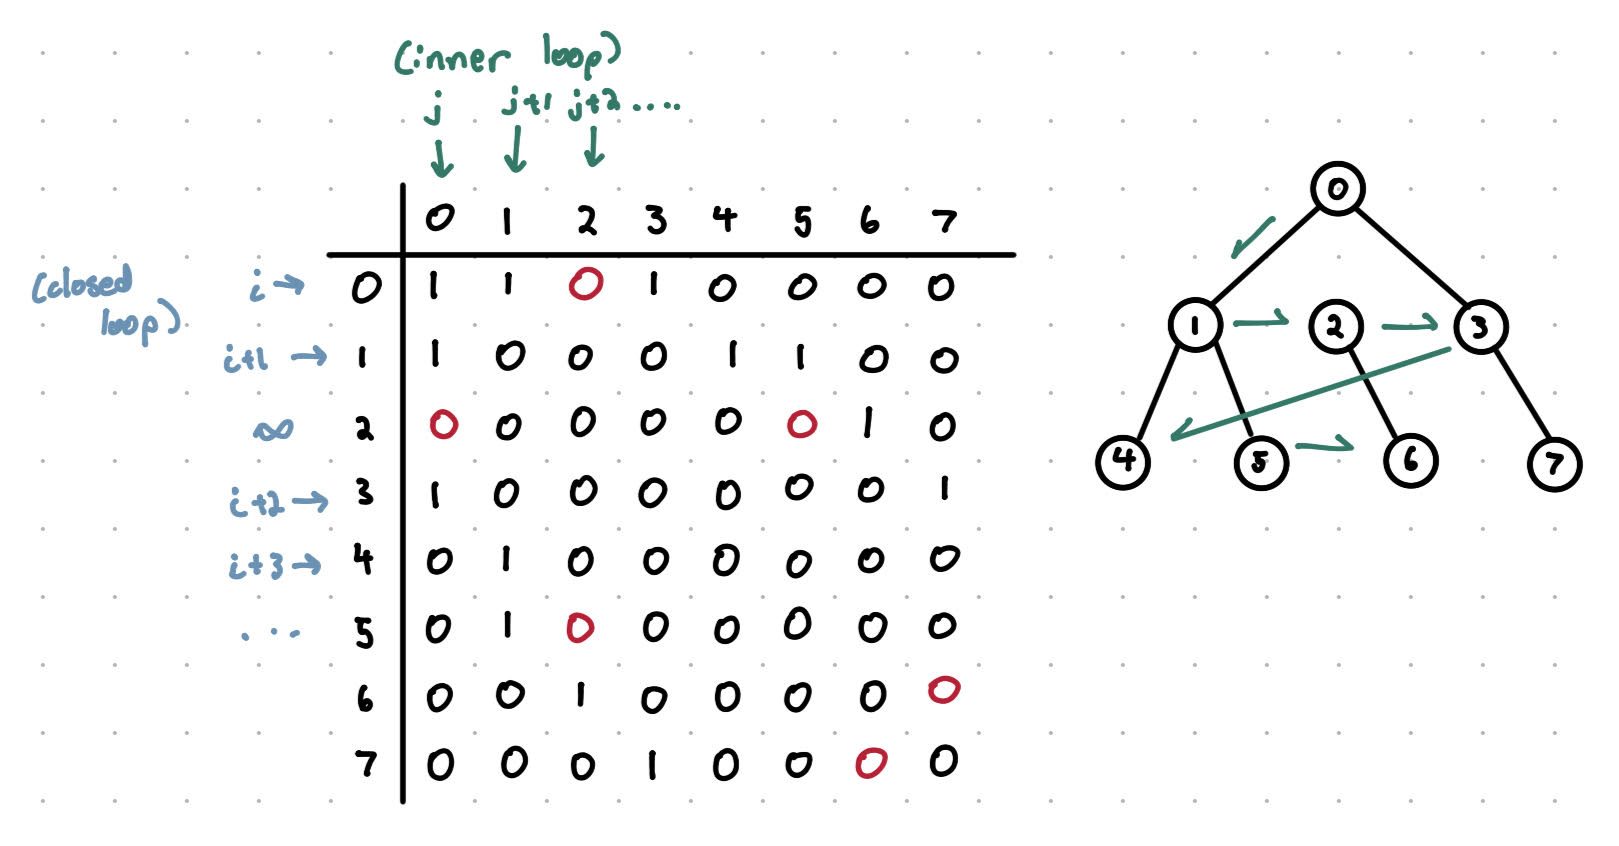 (inner loop)
j j+1 j+2 ....
0 1 2 3 4 5 6 7
(closed loop)
i → 0 1 1 0 1 0 0 0 0
i+1 → 1 1 0 0 0 1 1 0 0
∞ 2 0 0 0 0 0 0 1 0
i+2 → 3 1 0 0 0 0 0 0 1
i+3 → 4 0 1 0 0 0 0 0 0
... 5 0 1 0 0 0 0 0 0
6 0 0 1 0 0 0 0 0
7 0 0 0 1 0 0 0 0
0
1 → 2 → 3
4 5 → 6 7